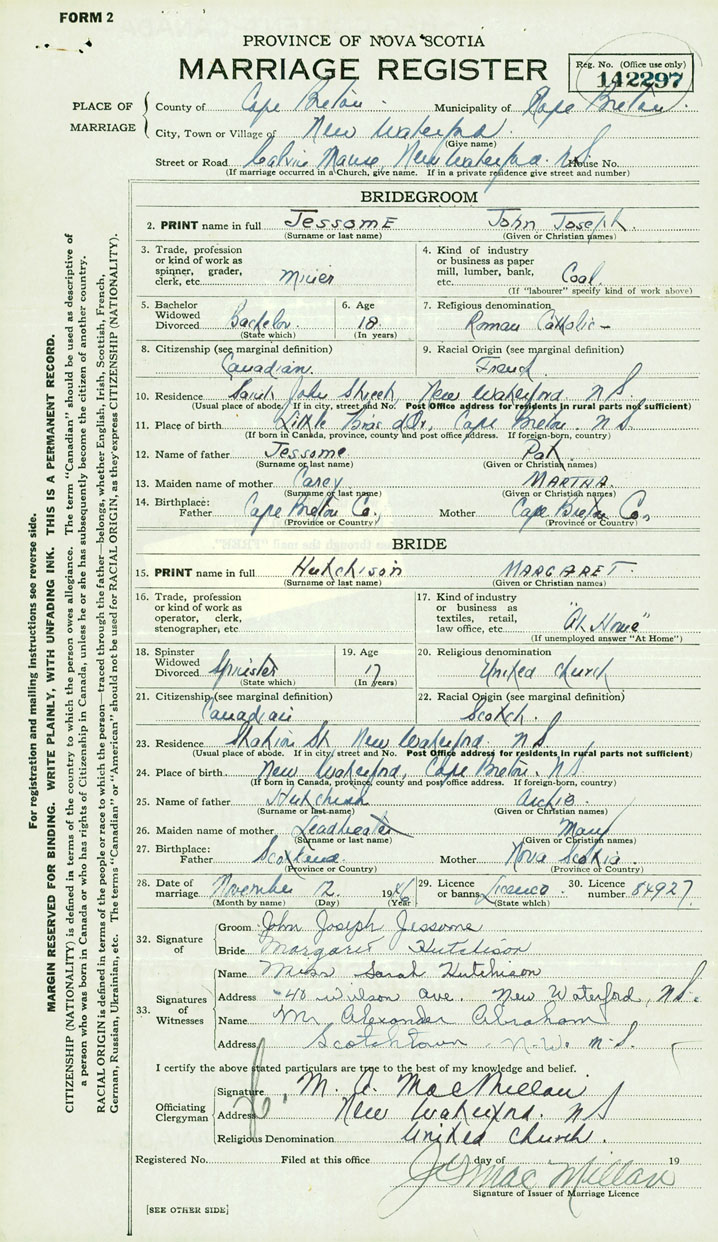 FORM 2
PROVINCE OF NOVA SCOTIA
MARRIAGE REGISTER
Reg. No. (Office use only)
142297
PLACE OF MARRIAGE
County of Cape Breton Municipality of Cape Breton
City, Town or Village of New Waterford
(Give name)
Street or Road Calvin Manse, New Waterford. N.S. House No.
(If marriage occurred in a Church, give name. If in a private residence give street and number)
BRIDEGROOM
2. PRINT name in full JESSOME John Joseph.
(Surname or last name) (Given or Christian names)
3. Trade, profession or kind of work as spinner, grader, clerk, etc. Miner
4. Kind of industry or business as paper mill, lumber, bank, etc. Coal.
(If "labourer" specify kind of work above)
5. Bachelor Widowed Divorced Bachelor.
(State which)
6. Age 18.
(In years)
7. Religious denomination Roman Catholic -
8. Citizenship (see marginal definition) Canadian.
9. Racial Origin (see marginal definition) French.
10. Residence Saint John Street, New Waterford N S
(Usual place of abode. If in city, street and No. Post Office address for residents in rural parts not sufficient)
11. Place of birth Little Bras d'Or, Cape Breton. N.S.
(If born in Canada, province, county and post office address. If foreign-born, country)
12. Name of father Jessome Pat
(Surname or last name) (Given or Christian names)
13. Maiden name of mother Carey MARTHA
(Surname or last name) (Given or Christian names)
14. Birthplace: Father Cape Breton Co. Mother Cape Breton Co.
(Province or Country) (Province or Country)
BRIDE
15. PRINT name in full Hutchison MARGARET.
(Surname or last name) (Given or Christian names)
16. Trade, profession or kind of work as operator, clerk, stenographer, etc.
17. Kind of industry or business as textiles, retail, law office, etc. "At Home"
(If unemployed answer "At Home")
18. Spinster Widowed Divorced Spinster
(State which)
19. Age 17
(In years)
20. Religious denomination United Church
21. Citizenship (see marginal definition) Canadian
22. Racial Origin (see marginal definition) Scotch.
23. Residence St New Waterford. N S.
(Usual place of abode. If in city, street and No. Post Office address for residents in rural parts not sufficient)
24. Place of birth New Waterford, Cape Breton. N S
(If born in Canada, province, county and post office address. If foreign-born, country)
25. Name of father Archie
(Surname or last name) (Given or Christian names)
26. Maiden name of mother Leadbeater Mary
(Surname or last name) (Given or Christian names)
27. Birthplace: Father Scotland. Mother Nova Scotia
(Province or Country) (Province or Country)
28. Date of marriage November 2. 1946
(Month by name) (Day) (Year)
29. Licence or banns Licence.
(State which)
30. Licence number 84927.
32. Signature of
Groom John Joseph Jessome
Bride Margaret Hutchison
33. Signatures of Witnesses
Name Miss Sarah Hutchison
Address 40 Wilson Ave. New Waterford, N.S.
Name Mr Alexander Abraham
Address Scotchtown N.W. N.S.
I certify the above stated particulars are true to the best of my knowledge and belief.
Officiating Clergyman
Signature M. A. MacMillan
Address New Waterford. N S
Religious Denomination United Church.
Registered No. Filed at this office day of 19
MacMillan
Signature of Issuer of Marriage Licence
[SEE OTHER SIDE]
For registration and mailing instructions see reverse side.
MARGIN RESERVED FOR BINDING. WRITE PLAINLY, WITH UNFADING INK. THIS IS A PERMANENT RECORD.
CITIZENSHIP (NATIONALITY) is defined in terms of the country to which the person owes allegiance. The term "Canadian" should be used as descriptive of
a person who was born in Canada or who has rights of Citizenship in Canada, unless he or she has subsequently become the citizen of another country.
RACIAL ORIGIN is defined in terms of the people or race to which the person—traced through the father—belongs, whether English, Irish, Scottish, French,
German, Russian, Ukrainian, etc. The terms "Canadian" or "American" should not be used for RACIAL ORIGIN, as they express CITIZENSHIP (NATIONALITY).